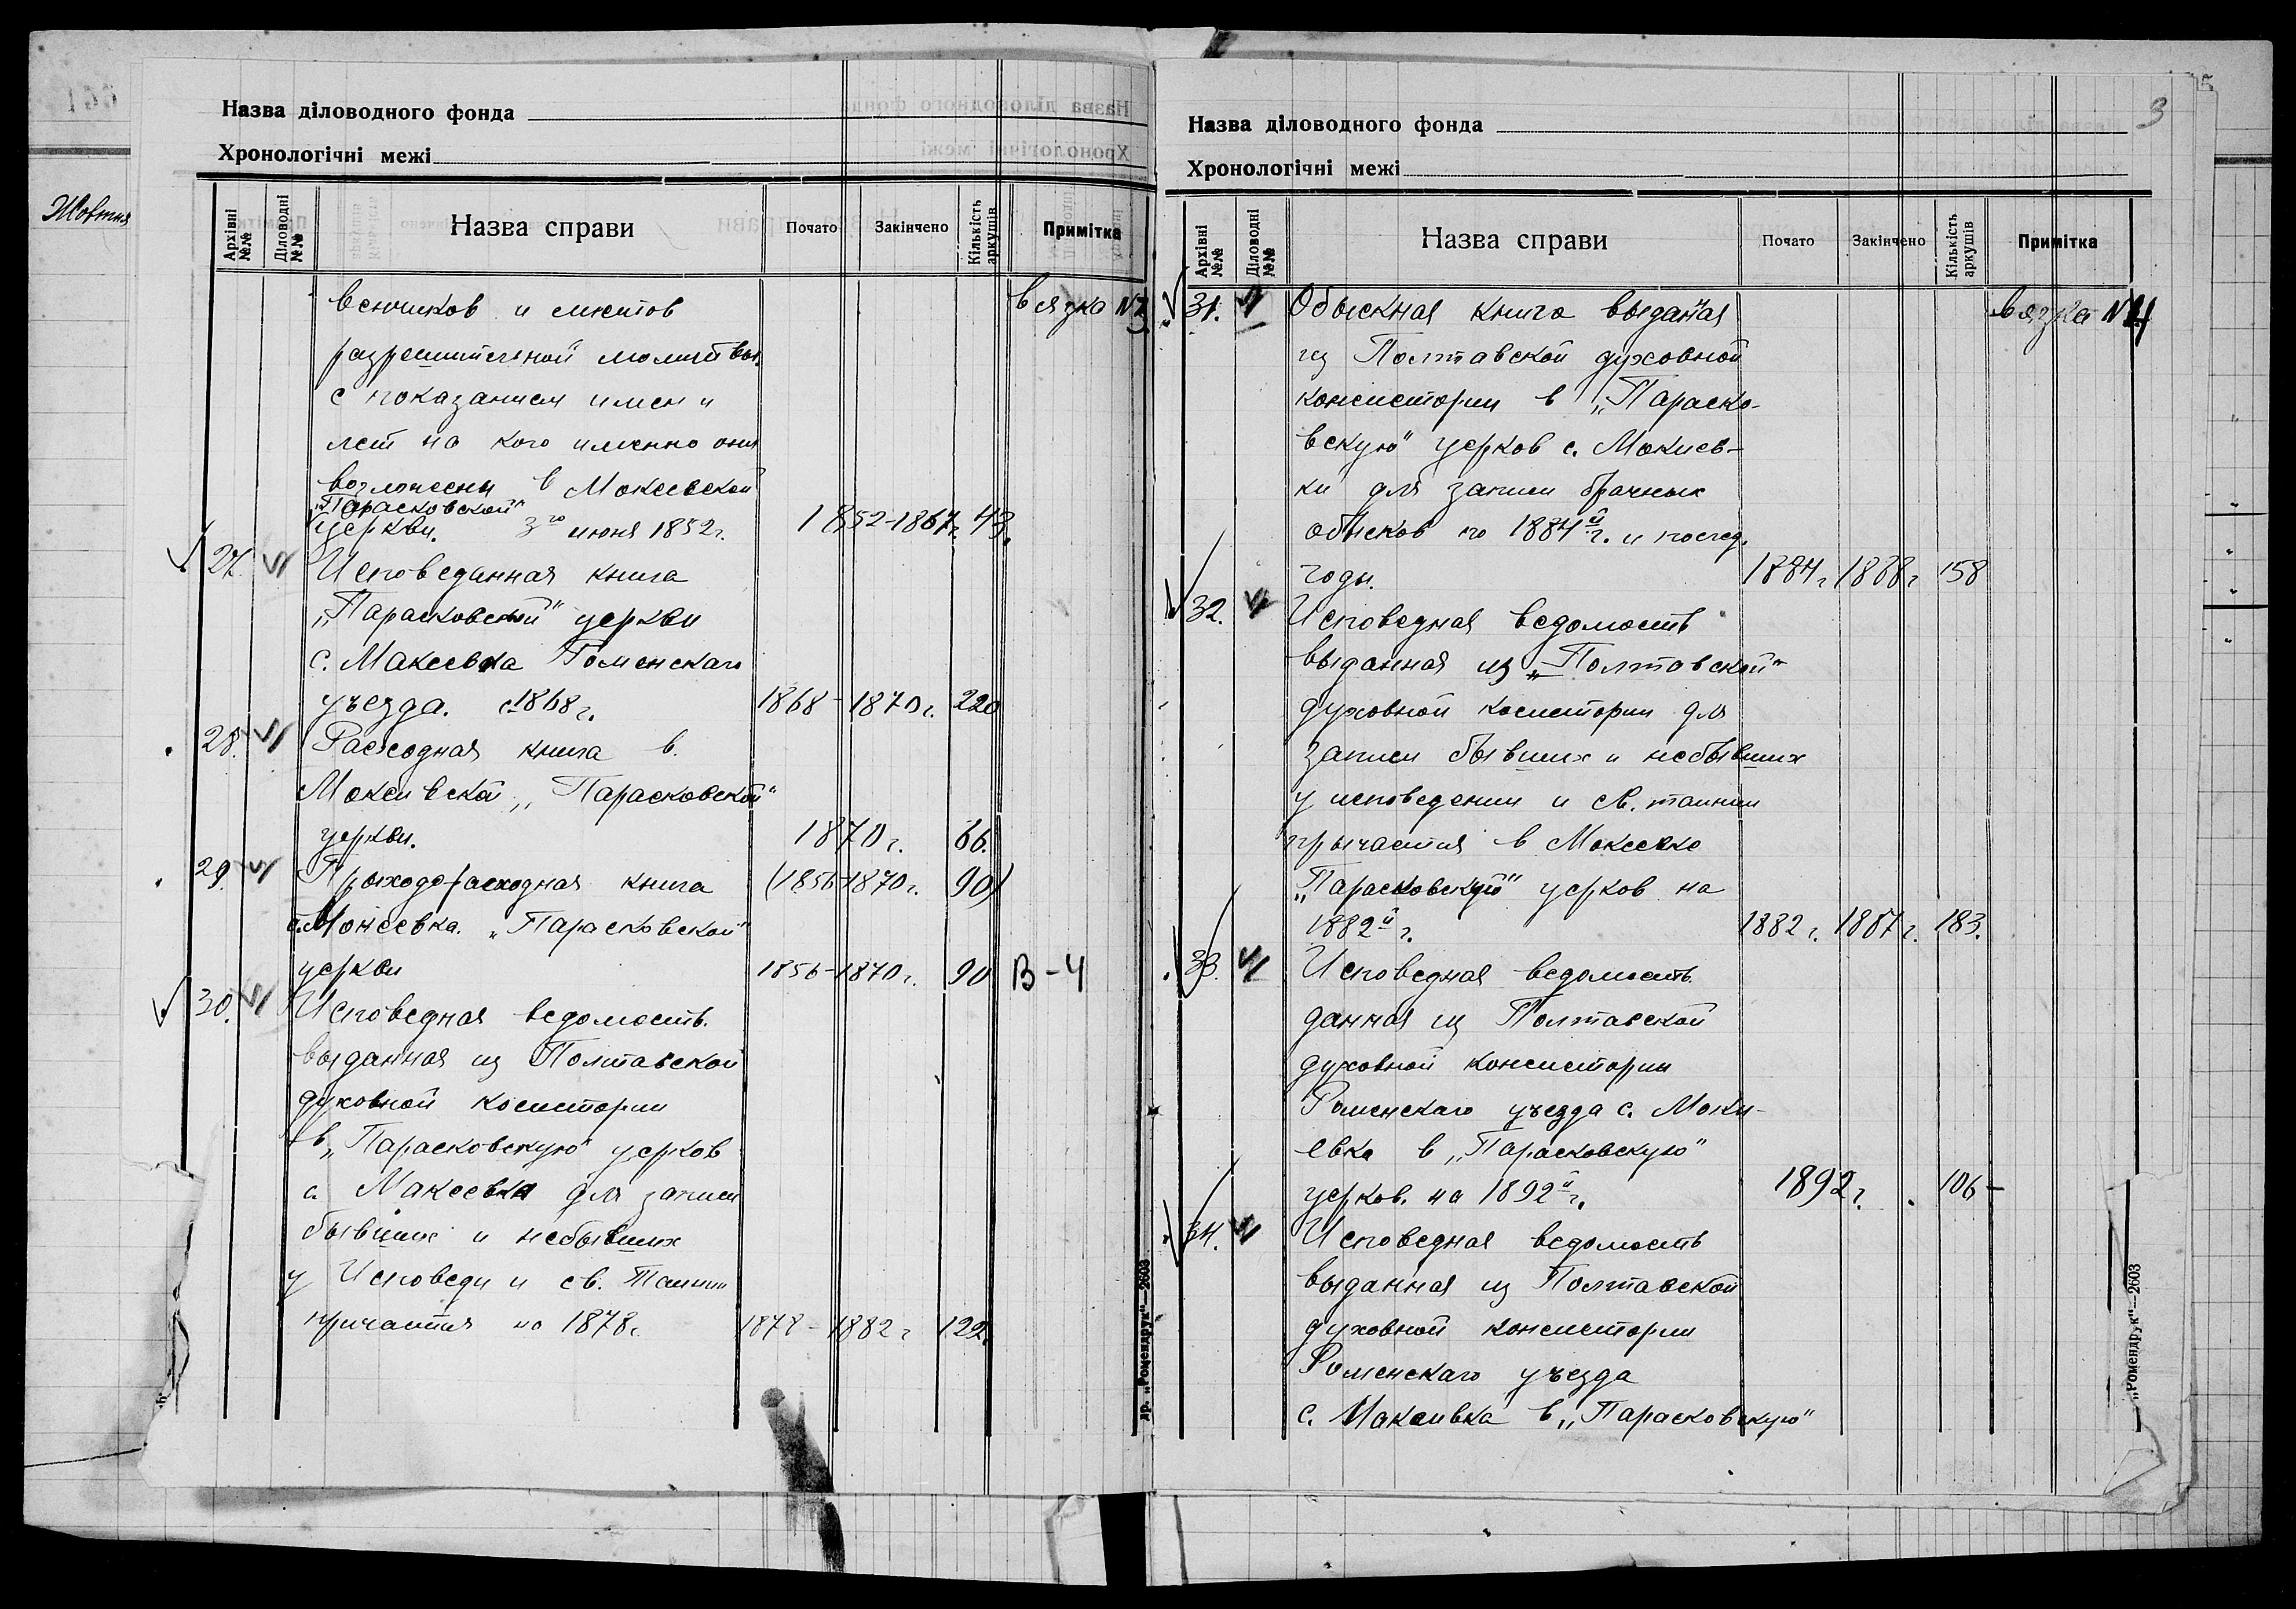 Жовтня
Назва діловодного фонда
Хронологічні межі
Архівні №№
Діловодні №№
Назва справи
Почато
Закінчено
Кількість аркушів
Примітка
венчиков и листов
вязка N 3
разрешительной молитвы
с показанием имен и
лет на кого именно они
возложены в Мокеевской
"Парасковской"
церкви. 3го июня 1852г. 1852-1867г. 43.
27. Исповеданная книга
"Парасковской" церкви
с. Макеевка Роменскаго
уъезда. с 1868г. 1868-1870г. 220
28. Расходная книга в.
Мокеивской "Парасковской"
церкви. 1870г. 86.
29. Прыходо-расходная книга (1856-1870г. 90)
с. Мокеевка. "Парасковской"
церкви 1856-1870г. 90 В-4
30. Исповедная ведомость.
выданная из Полтавской
духовной косистории
в "Парасковскую" церков
с. Макеевка для записи
бывших и небывших
у Исповеди и св. Таинии
причастия на 1878г. 1878-1882г 122.
др. „Ромендрук"—2603
3
Назва діловодного фонда
Хронологічні межі
Архівні №№
Діловодні №№
Назва справи
Почато
Закінчено
Кількість аркушів
Примітка
31. Обыскная книга выданая вязка N 4
из Полтавской духовной
консистории в "Параско-
вскую" церков с. Мокиев-
ки для записи брачных
обысков по 1884й г. и послед.
годы. 1884г. 1888г. 158
32. Исповедная ведомость
выданная из "Полтавской"
духовной косистории для
записи бывших и небывших
у исповедении и св. таинии
прычастия в Мокеевке
"Парасковскую" церков на
1882й г. 1882г. 1887г. 183.
33. Исповедная ведомость.
данная из Полтавской
духовной консистории
Роменскаго уъезда с. Моки-
евка в "Парасковскую"
церков. на 1892й г. 1892г. 106-
34. Исповедная ведомость
выданная из Полтавской
духовной консистории
Роменскаго уъезда
с. Макеивка в "Парасковскую"
„Ромендрук"—2603